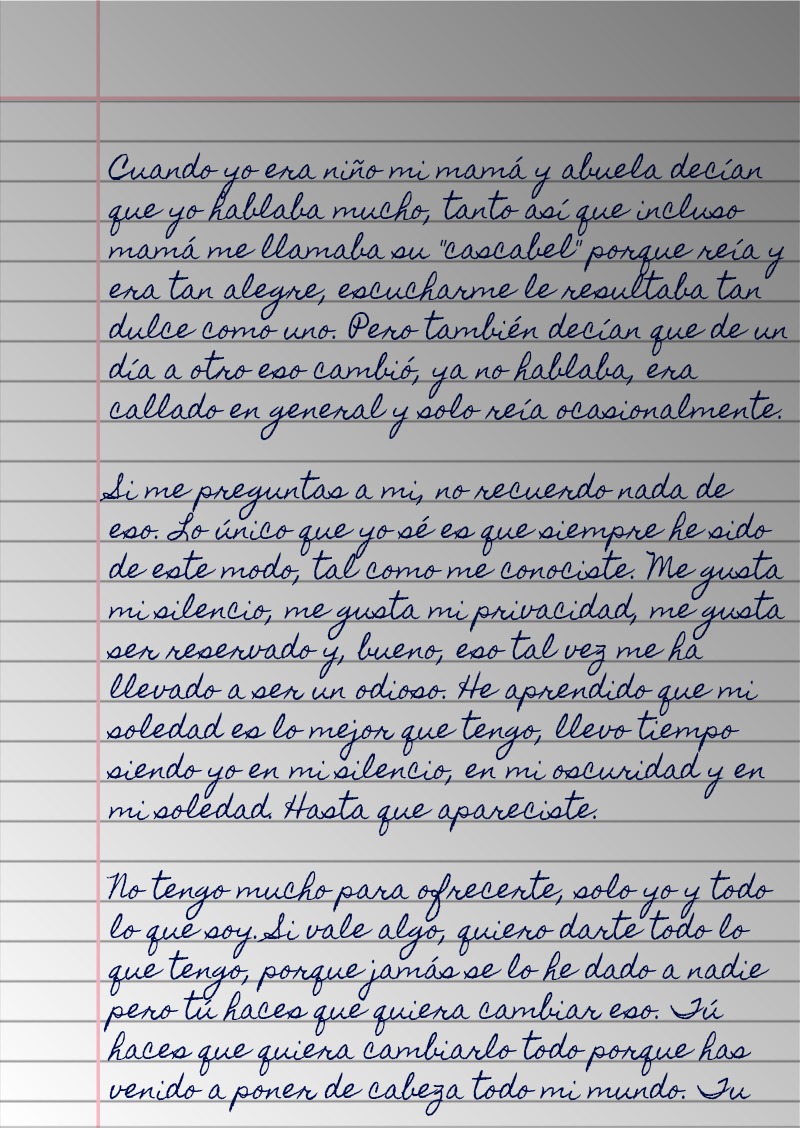 Cuando yo era niño mi mamá y abuela decían
que yo hablaba mucho, tanto así que incluso
mamá me llamaba su "cascabel" porque reía y
era tan alegre, escucharme le resultaba tan
dulce como uno. Pero también decían que de un
día a otro eso cambió, ya no hablaba, era
callado en general y solo reía ocasionalmente.
Si me preguntas a mi, no recuerdo nada de
eso. Lo único que yo sé es que siempre he sido
de este modo, tal como me conociste. Me gusta
mi silencio, me gusta mi privacidad, me gusta
ser reservado y, bueno, eso tal vez me ha
llevado a ser un odioso. He aprendido que mi
soledad es lo mejor que tengo, llevo tiempo
siendo yo en mi silencio, en mi oscuridad y en
mi soledad. Hasta que apareciste.
No tengo mucho para ofrecerte, solo yo y todo
lo que soy. Si vale algo, quiero darte todo lo
que tengo, porque jamás se lo he dado a nadie
pero tú haces que quiera cambiar eso. Tú
haces que quiera cambiarlo todo porque has
venido a poner de cabeza todo mi mundo. Tu